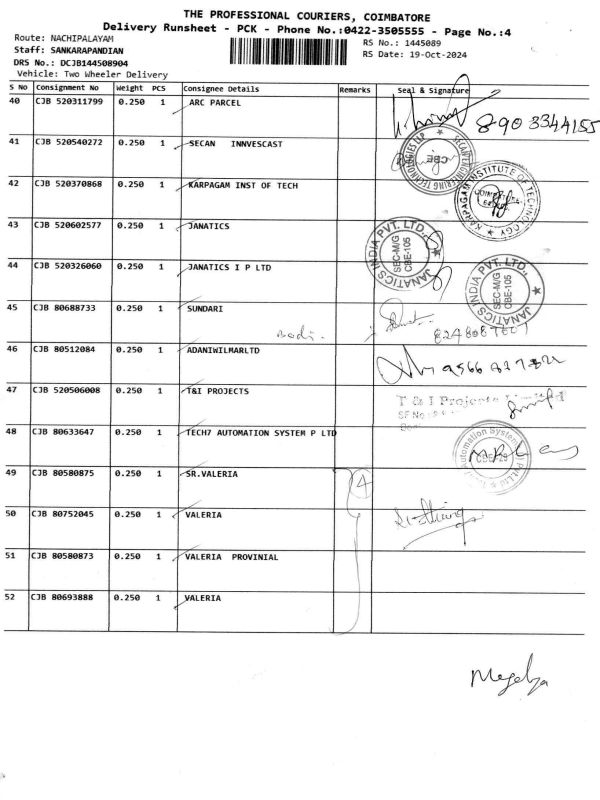 THE PROFESSIONAL COURIERS, COIMBATORE
Delivery Runsheet - PCK - Phone No.:0422-3505555 - Page No.:4
Route: NACHIPALAYAM
RS No.: 1445089
Staff: SANKARAPANDIAN
RS Date: 19-Oct-2024
DRS No.: DCJB144508904
Vehicle: Two Wheeler Delivery
S No Consignment No Weight PCS Consignee Details Remarks Seal & Signature
40 CJB 520311799 0.250 1 ARC PARCEL 8903344155
41 CJB 520540272 0.250 1 SECAN INNVESCAST
42 CJB 520370868 0.250 1 KARPAGAM INST OF TECH
KARPAGAM INSTITUTE OF TECHNOLOGY
43 CJB 520602577 0.250 1 JANATICS
JANATICS INDIA PVT. LTD., SEC-M/G CBE-105
44 CJB 520326060 0.250 1 JANATICS I P LTD
JANATICS INDIA PVT. LTD., SEC-M/G CBE-105
45 CJB 80688733 0.250 1 SUNDARI
46 CJB 80512084 0.250 1 ADANIWILMARLTD
47 CJB 520506008 0.250 1 T&I PROJECTS
T & I Projects Limited
48 CJB 80633647 0.250 1 TECH7 AUTOMATION SYSTEM P LTD
49 CJB 80580875 0.250 1 SR.VALERIA 4
50 CJB 80752045 0.250 1 VALERIA
51 CJB 80580873 0.250 1 VALERIA PROVINIAL
52 CJB 80693888 0.250 1 VALERIA